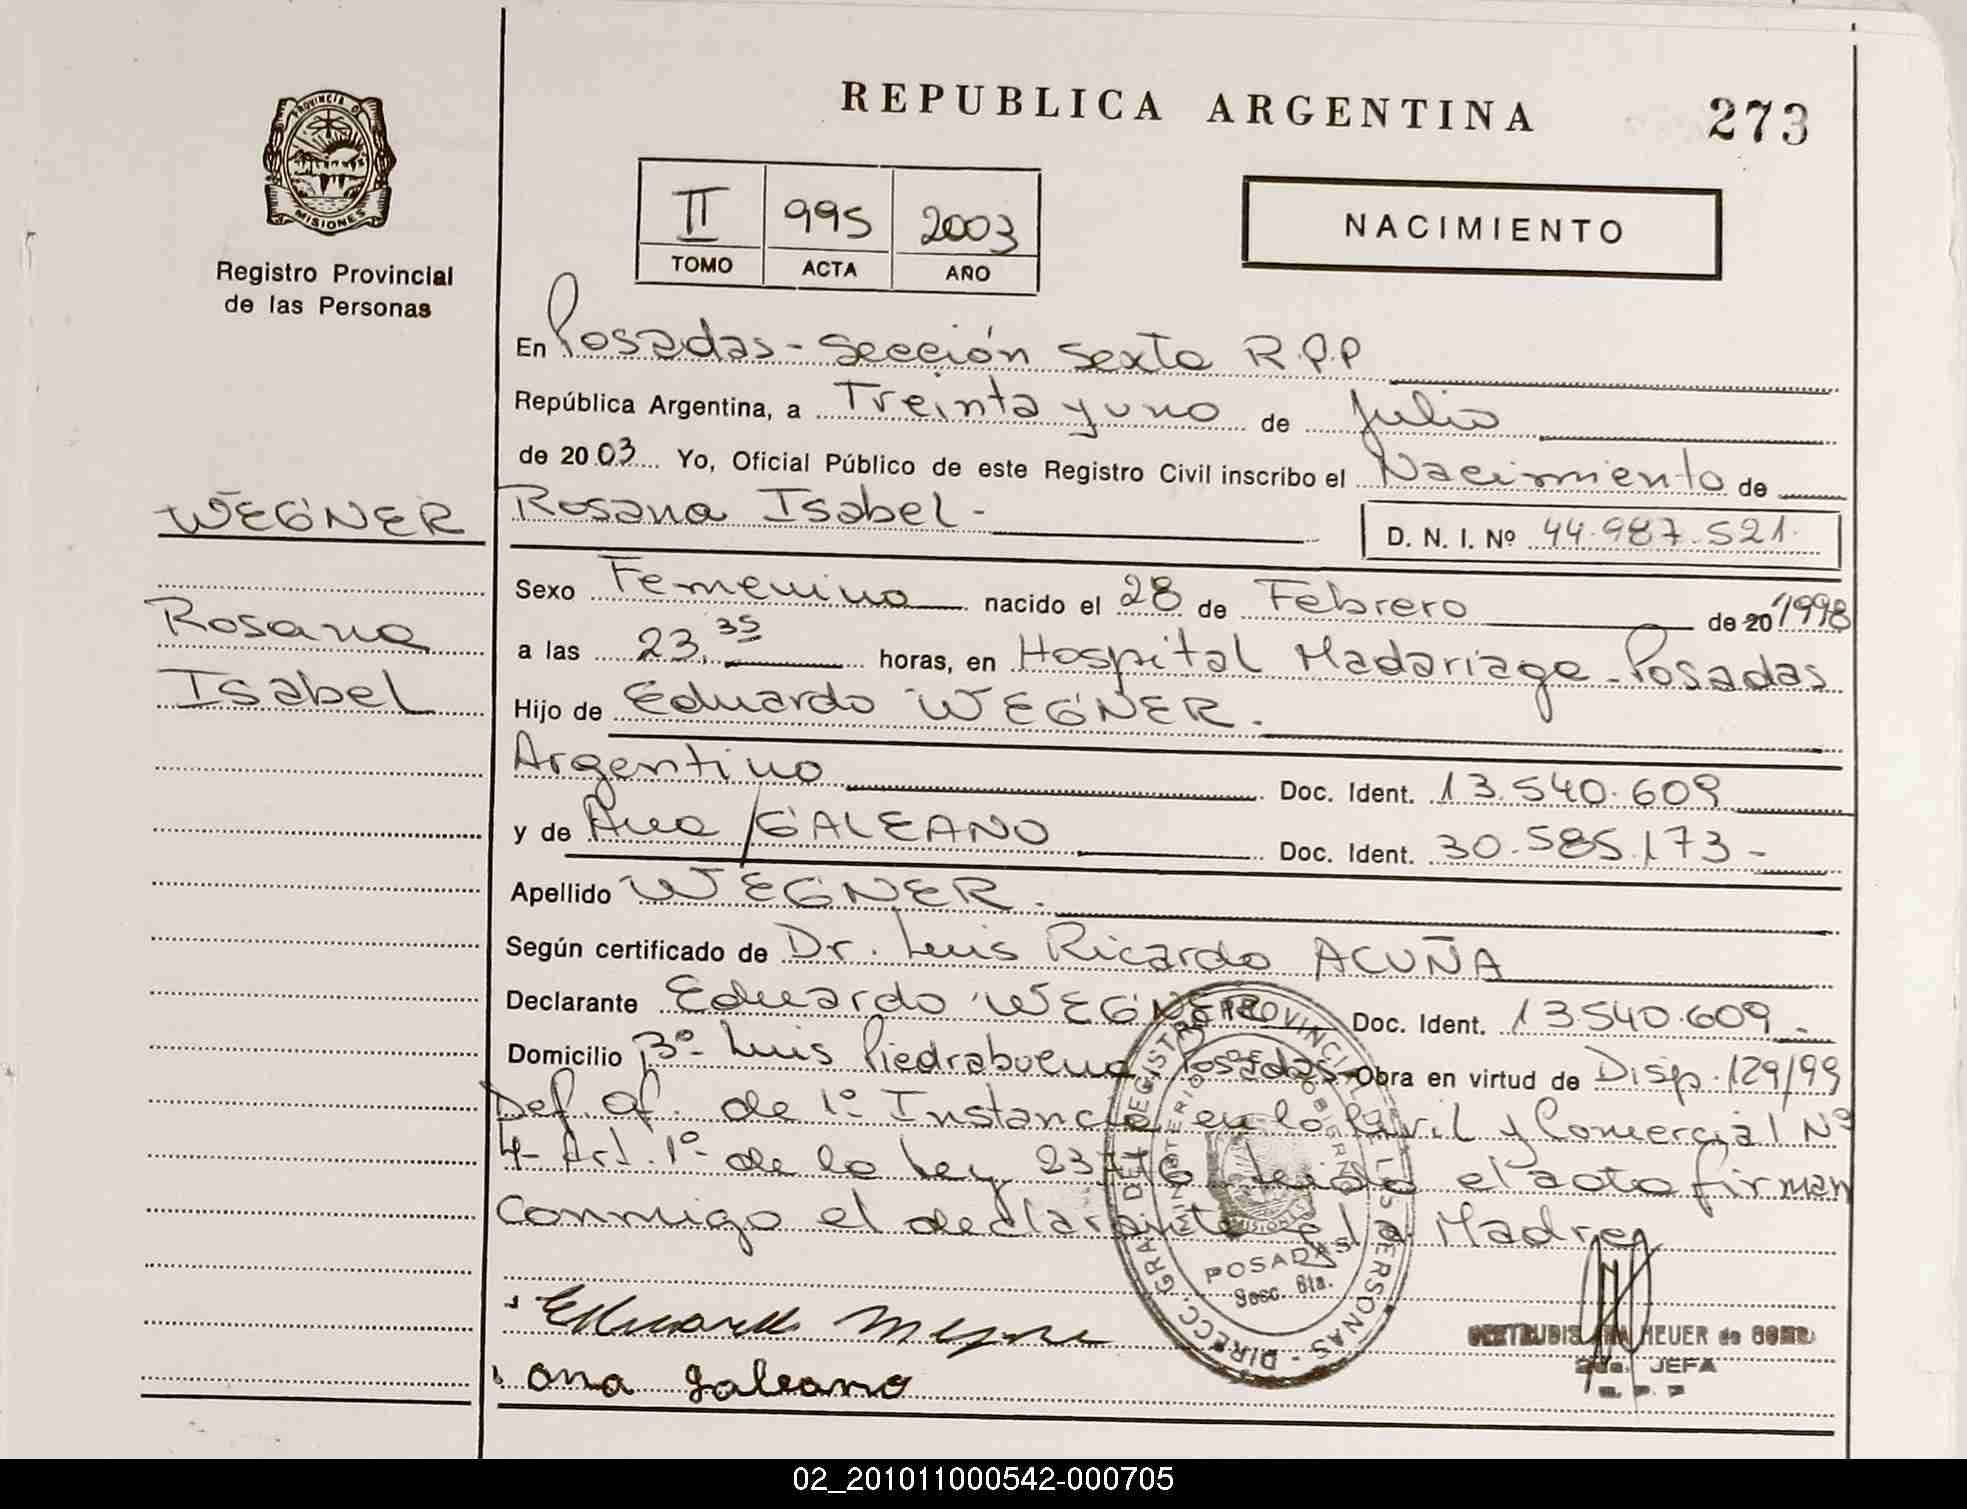 REPUBLICA ARGENTINA
273
PROVINCIA DE
MISIONES
Registro Provincial
de las Personas
II 995 2003
TOMO ACTA AÑO
NACIMIENTO
En Posadas - Sección Sexta R.P.P
República Argentina, a Treinta y uno de Julio
de 2003 Yo, Oficial Público de este Registro Civil inscribo el Nacimiento de
WEGNER
Rosana Isabel -
D. N. I. Nº 44.987.521.
Rosana
Isabel
Sexo Femenino nacido el 28 de Febrero de 20 1998
a las 23,35 horas, en Hospital Madariaga - Posadas
Hijo de Eduardo WEGNER.
Argentino Doc. Ident. 13.540.609
y de Ana / GALEANO Doc. Ident. 30.585.173 -
Apellido WEGNER.
Según certificado de Dr. Luis Ricardo ACUÑA
Declarante Eduardo WEGNER Doc. Ident. 13.540.609 -
Domicilio Bº- Luis Piedrabuena, Posadas - Obra en virtud de Disp. 129/99
Def. Of. de 1º Instancia en lo Civil y Comercial Nº
4- Art. 1º- de la Ley 23776 Leida el acta firman
conmigo el declarante e la Madre
Eduardo Wegner
Ana Galeano
DIRECC. GRAL. DEL REGISTRO PROVINCIAL DE LAS PERSONAS
MINISTERIO DE GOBIERNO
MISIONES
POSADAS
Secc. 6ta.
HEUER de
JEFA
R. P. P
02_201011000542-000705